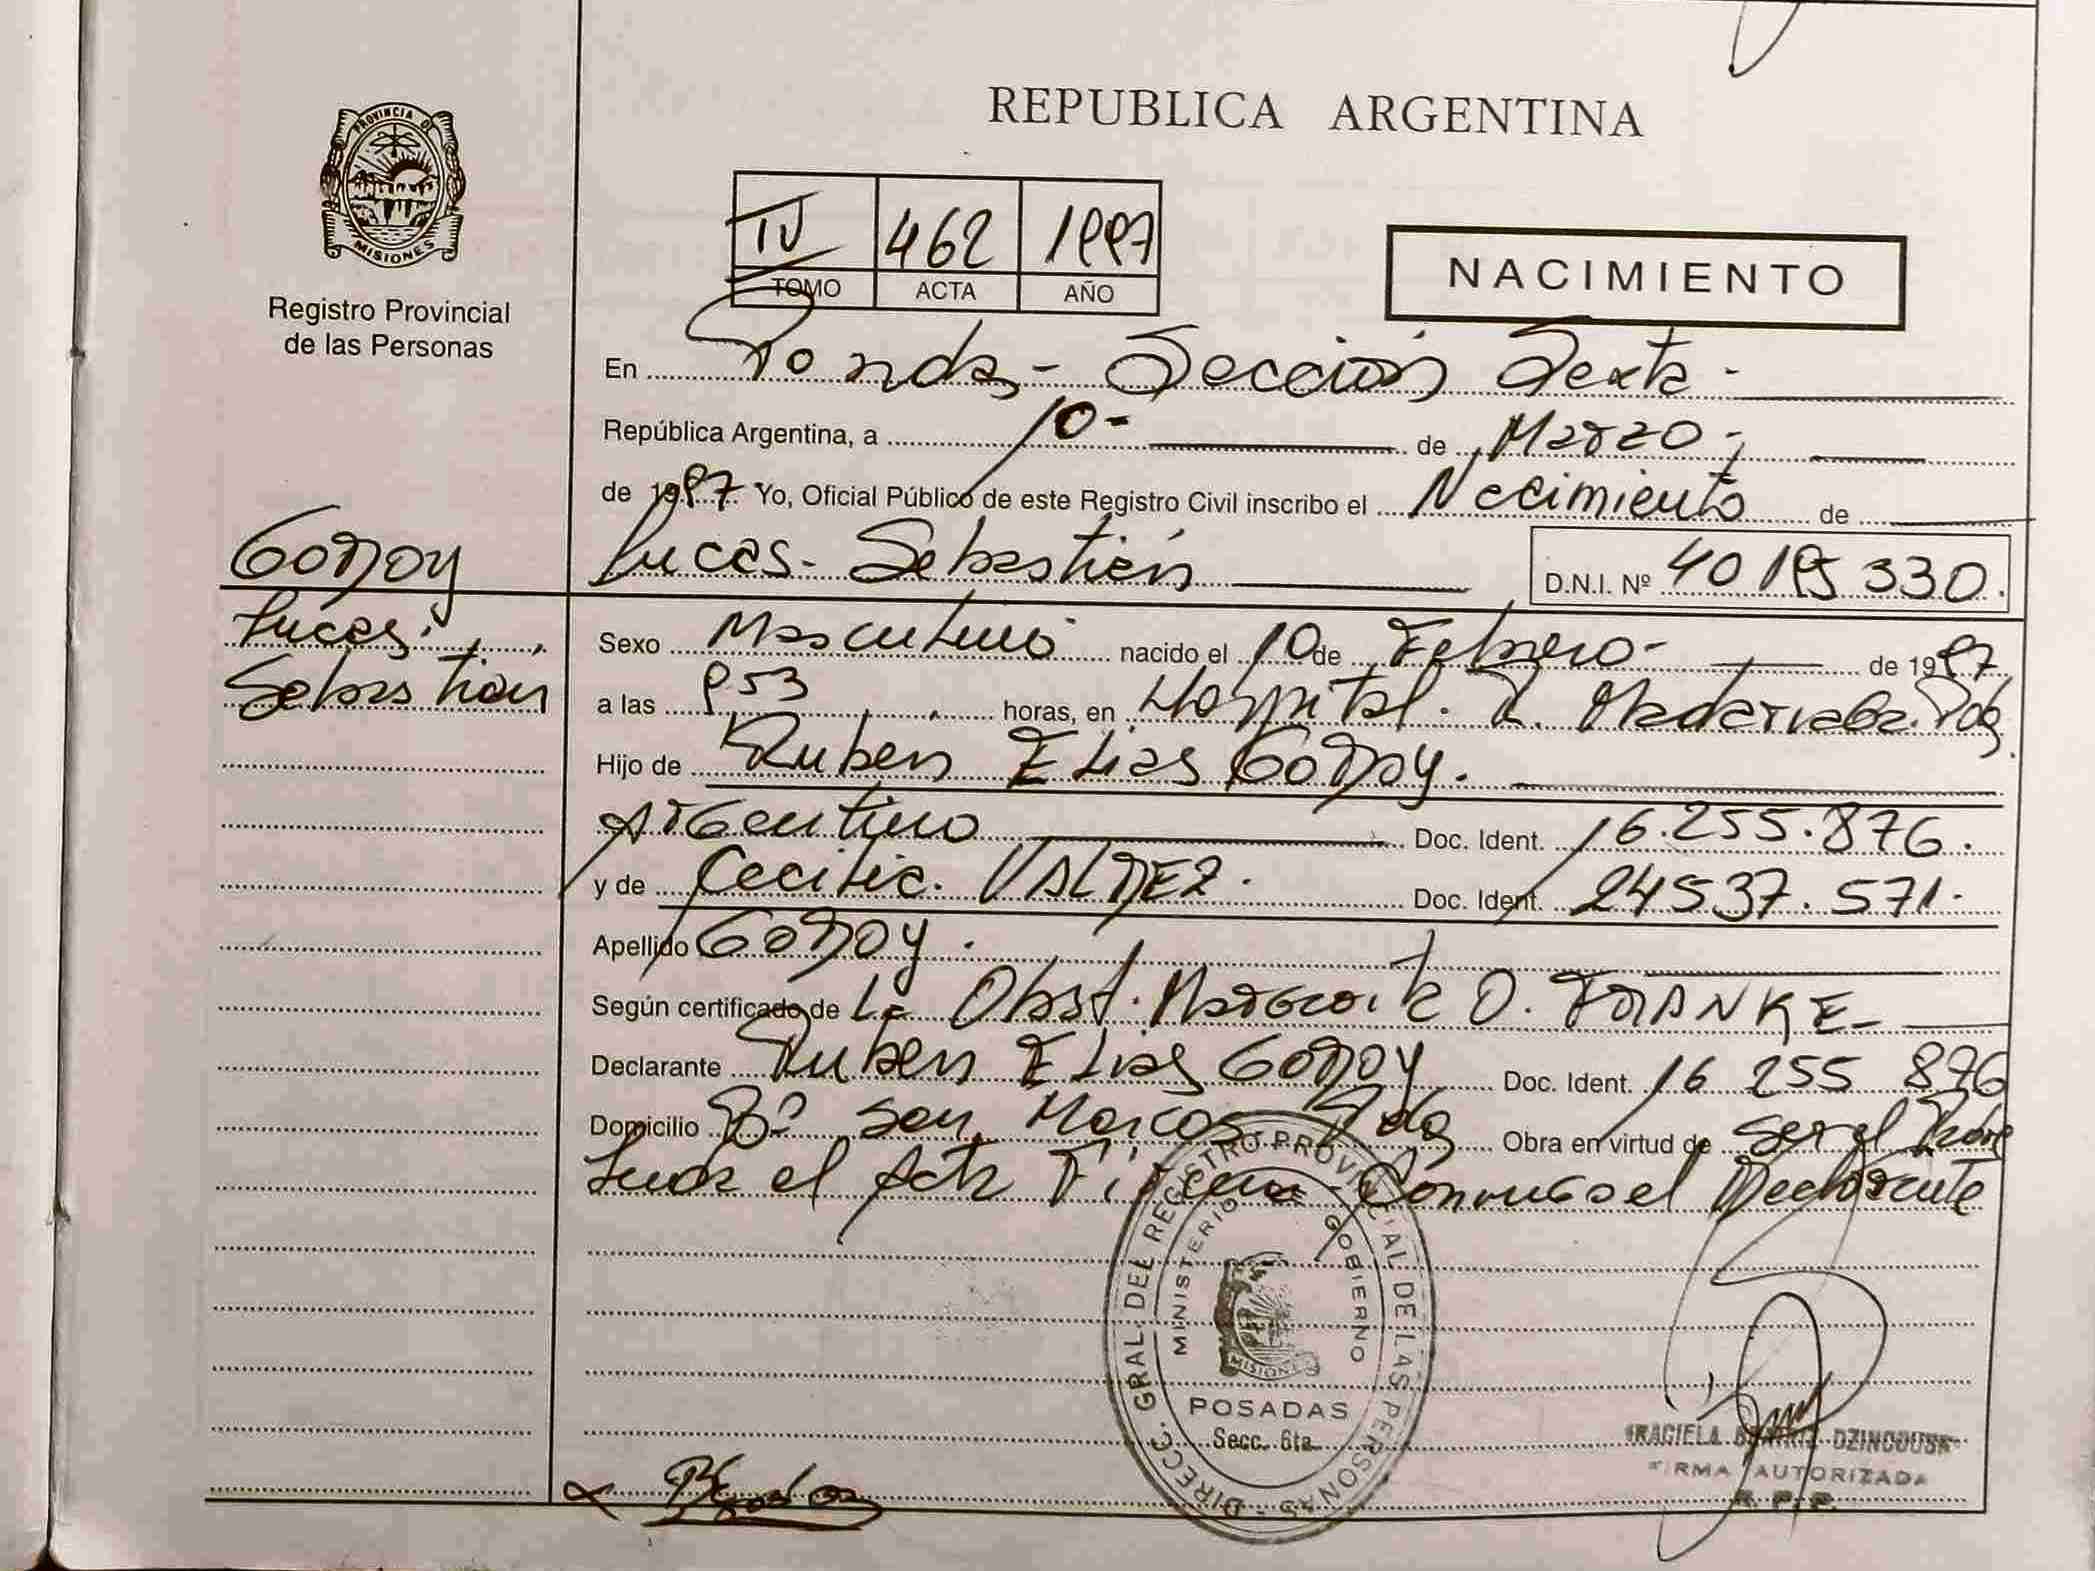 REPUBLICA ARGENTINA
PROVINCIA D
MISIONES
Registro Provincial
de las Personas
IV 462 1997
TOMO ACTA AÑO
NACIMIENTO
En Posadas - Sección Sexta -
República Argentina, a 10 - de Marzo -
de 1997 Yo, Oficial Público de este Registro Civil inscribo el Nacimiento de
GODOY
Lucas
Sebastián
Lucas - Sebastián D.N.I. Nº 40 195 330.
Sexo Masculino nacido el 10 de Febrero - de 1997
a las 953 horas, en Hospital R. Madariaga. Pdas.
Hijo de Ruben Elias GODOY.
Argentino Doc. Ident. 16.255.876.
y de Cecilia. VALDEZ. Doc. Ident. 24537.571.
Apellido GODOY.
Según certificado de La Obst. Margarita O. FRANKE -
Declarante Ruben Elias GODOY Doc. Ident. 16 255 876
Domicilio Bº San Marcos Pdas Obra en virtud de ser el Padre
Leida el Acta Firma Conmigo el Declarante
DIRECC. GRAL. DEL REGISTRO PROVINCIAL DE LAS PERSONAS
MINISTERIO DE GOBIERNO
MISIONES
POSADAS
Secc. 6ta.
GRACIELA DZINDOUSK
FIRMA AUTORIZADA
R. P. P.